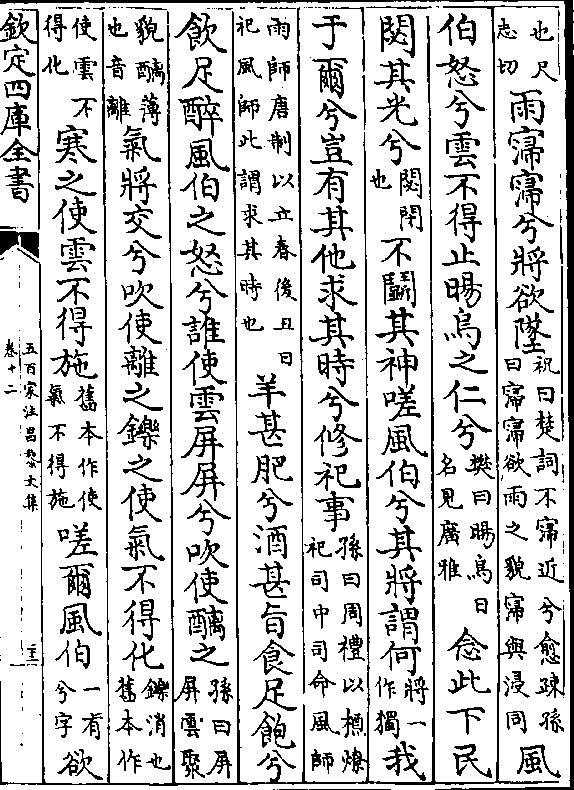 也尺志切雨寖寖兮將欲墜祝曰楚詞不寖近兮愈踈孫曰寖寖欲雨之貌寖與浸同風
伯怒兮雲不得止暘烏之仁兮樊曰暘烏日名見廣雅念此下民
閟其光兮閟閉也不鬭其神嗟風伯兮其將謂何將一作獨我
于爾兮豈有其他求其時兮修祀事孫曰周禮以槱燎祀司中司命風師
雨師唐制以立春後丑日祀風師此謂求其時也羊甚肥兮酒甚旨食足飽兮
飲足醉風伯之怒兮誰使雲屏屏兮吹使醨之孫曰屏屏雲聚
貌醨薄也音離氣將交兮吹使離之鑠之使氣不得化鑠消也舊本作
使雲不得化寒之使雲不得施舊本作使氣不得施嗟爾風伯一有兮字欲
欽定四庫全書
五百家注昌黎文集
卷十二